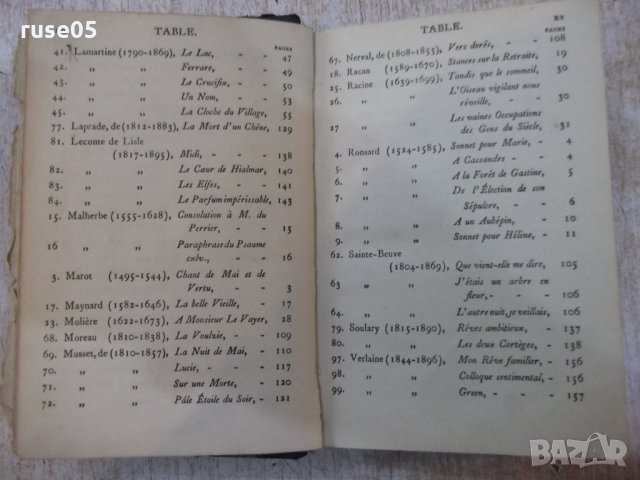 ruse05
TABLE.
PAGES
41. Lamartine (1790-1869), Le Lac, - - 47
42. „ „ Ferrare, - - 49
43. „ „ Le Crucifix, - 50
44. „ „ Un Nom, - - 53
45. „ „ La Cloche du Village, 55
77. Laprade, de (1812-1883), La Mort d'un Chêne, 129
81. Leconte de Lisle
(1817-1895), Midi, - - 138
82. „ „ Le Cœur de Hialmar, 140
83. „ „ Les Elfes, - 141
84. „ „ Le Parfum impérissable, 143
15. Malherbe (1555-1628), Consolation à M. du
Perrier, - - 15
16 „ „ Paraphrase du Psaume
cxlv., - - 16
3. Marot (1495-1544), Chant de Mai et de
Vertu, - - 3
17. Maynard (1582-1646), La belle Vieille, - 17
23. Molière (1622-1673), A Monsieur Le Vayer, 28
68. Moreau (1810-1838), La Voulzie, - 109
69. Musset, de (1810-1857), La Nuit de Mai, - 110
70. „ „ Lucie, - - 117
71. „ „ Sur une Morte, - 120
72. „ „ Pâle Étoile du Soir, - 121
TABLE. xv
PAGES
67. Nerval, de (1808-1855), Vers dorés, - - 108
18. Racan (1589-1670), Stances sur la Retraite, 19
25. Racine (1639-1699), Tandis que le sommeil, 30
26. „ „ L'Oiseau vigilant nous
réveille, - - 30
27 „ „ Les vaines Occupations
des Gens du Siècle, 31
4. Ronsard (1524-1585), Sonnet pour Marie, - 4
5. „ „ A Cassandre - - 4
6. „ „ A la Forêt de Gastine, 5
7. „ „ De l'Élection de son
Sépulcre, - - 6
8. „ „ A un Aubépin, - 10
9. „ „ Sonnet pour Hélène, - 11
62. Sainte-Beuve
(1804-1869), Que vient-elle me dire, 105
63 „ „ J'étais un arbre en
fleur, - - 106
64 „ „ L'autre nuit, je veillais, 106
79. Soulary (1815-1890), Rêves ambitieux, - 137
80. „ „ Les deux Cortèges, - 138
97. Verlaine (1844-1896), Mon Rêve familier, - 156
98. „ „ Colloque sentimental, - 156
99. „ „ Green, - - 157
BAZAR
bg